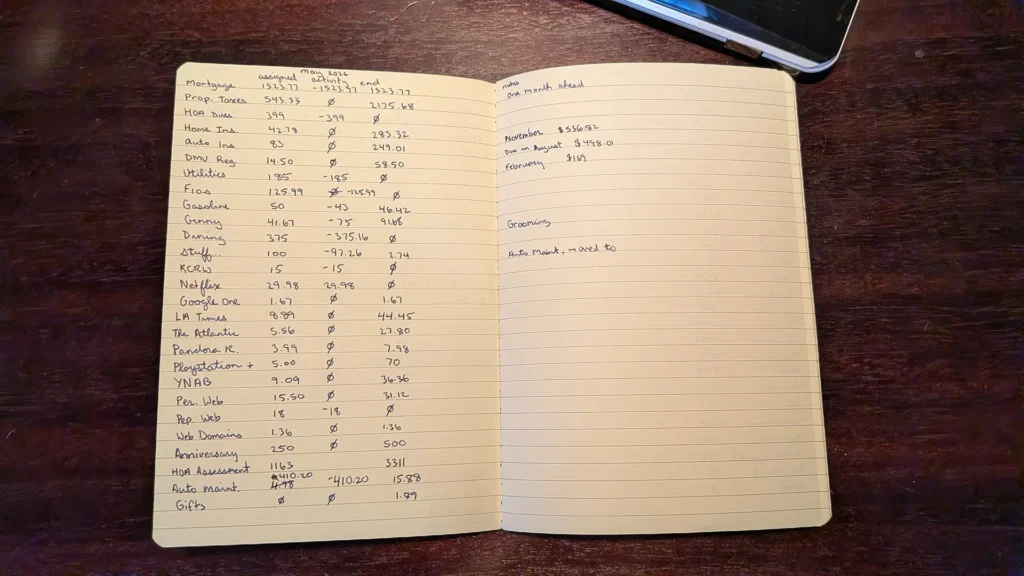 May 2026
assigned activity end
Mortgage 1523.77 -1523.77 1523.77
Prop. Taxes 543.33 Ø 2175.68
HOA Dues 399 -399 Ø
Home Ins. 42.78 Ø 283.32
Auto Ins 83 Ø 249.01
DMV Reg. 14.50 Ø 58.50
Utilities 185 -185 Ø
Fios 125.99 -125.99 Ø
Gasoline 50 -43 46.42
Ginny 41.67 -75 91.68
Dining 375 -375.16 Ø
Stuff... 100 -97.26 2.74
KCRW 15 -15 Ø
Netflix 29.98 29.98 Ø
Google One 1.67 Ø 1.67
LA Times 8.89 Ø 44.45
The Atlantic 5.56 Ø 27.80
Pandora R. 3.99 Ø 7.98
Playstation + 5.00 Ø 70
YNAB 9.09 Ø 36.36
Per. Web 15.50 Ø 31.12
Pep. Web 18 -18 Ø
Web Domains 1.36 Ø 1.36
Anniversary 250 Ø 500
HOA Assessment 1163 3311
Auto Maint. 4.98 410.20 -410.20 15.88
Gifts Ø Ø 1.89
notes
One month ahead
November $536.82
Due in August $498.01
February $169
Grooming
Auto Maint, moved to